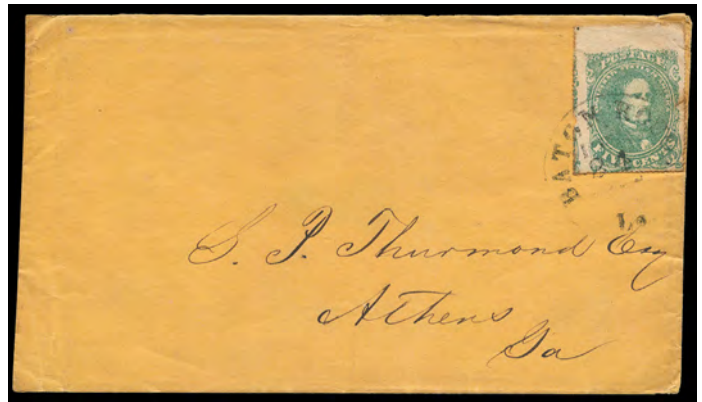 POSTAGE
FIVE CENTS
BATON RO
La
S. P. Thurmond Esq
Athens
Ga